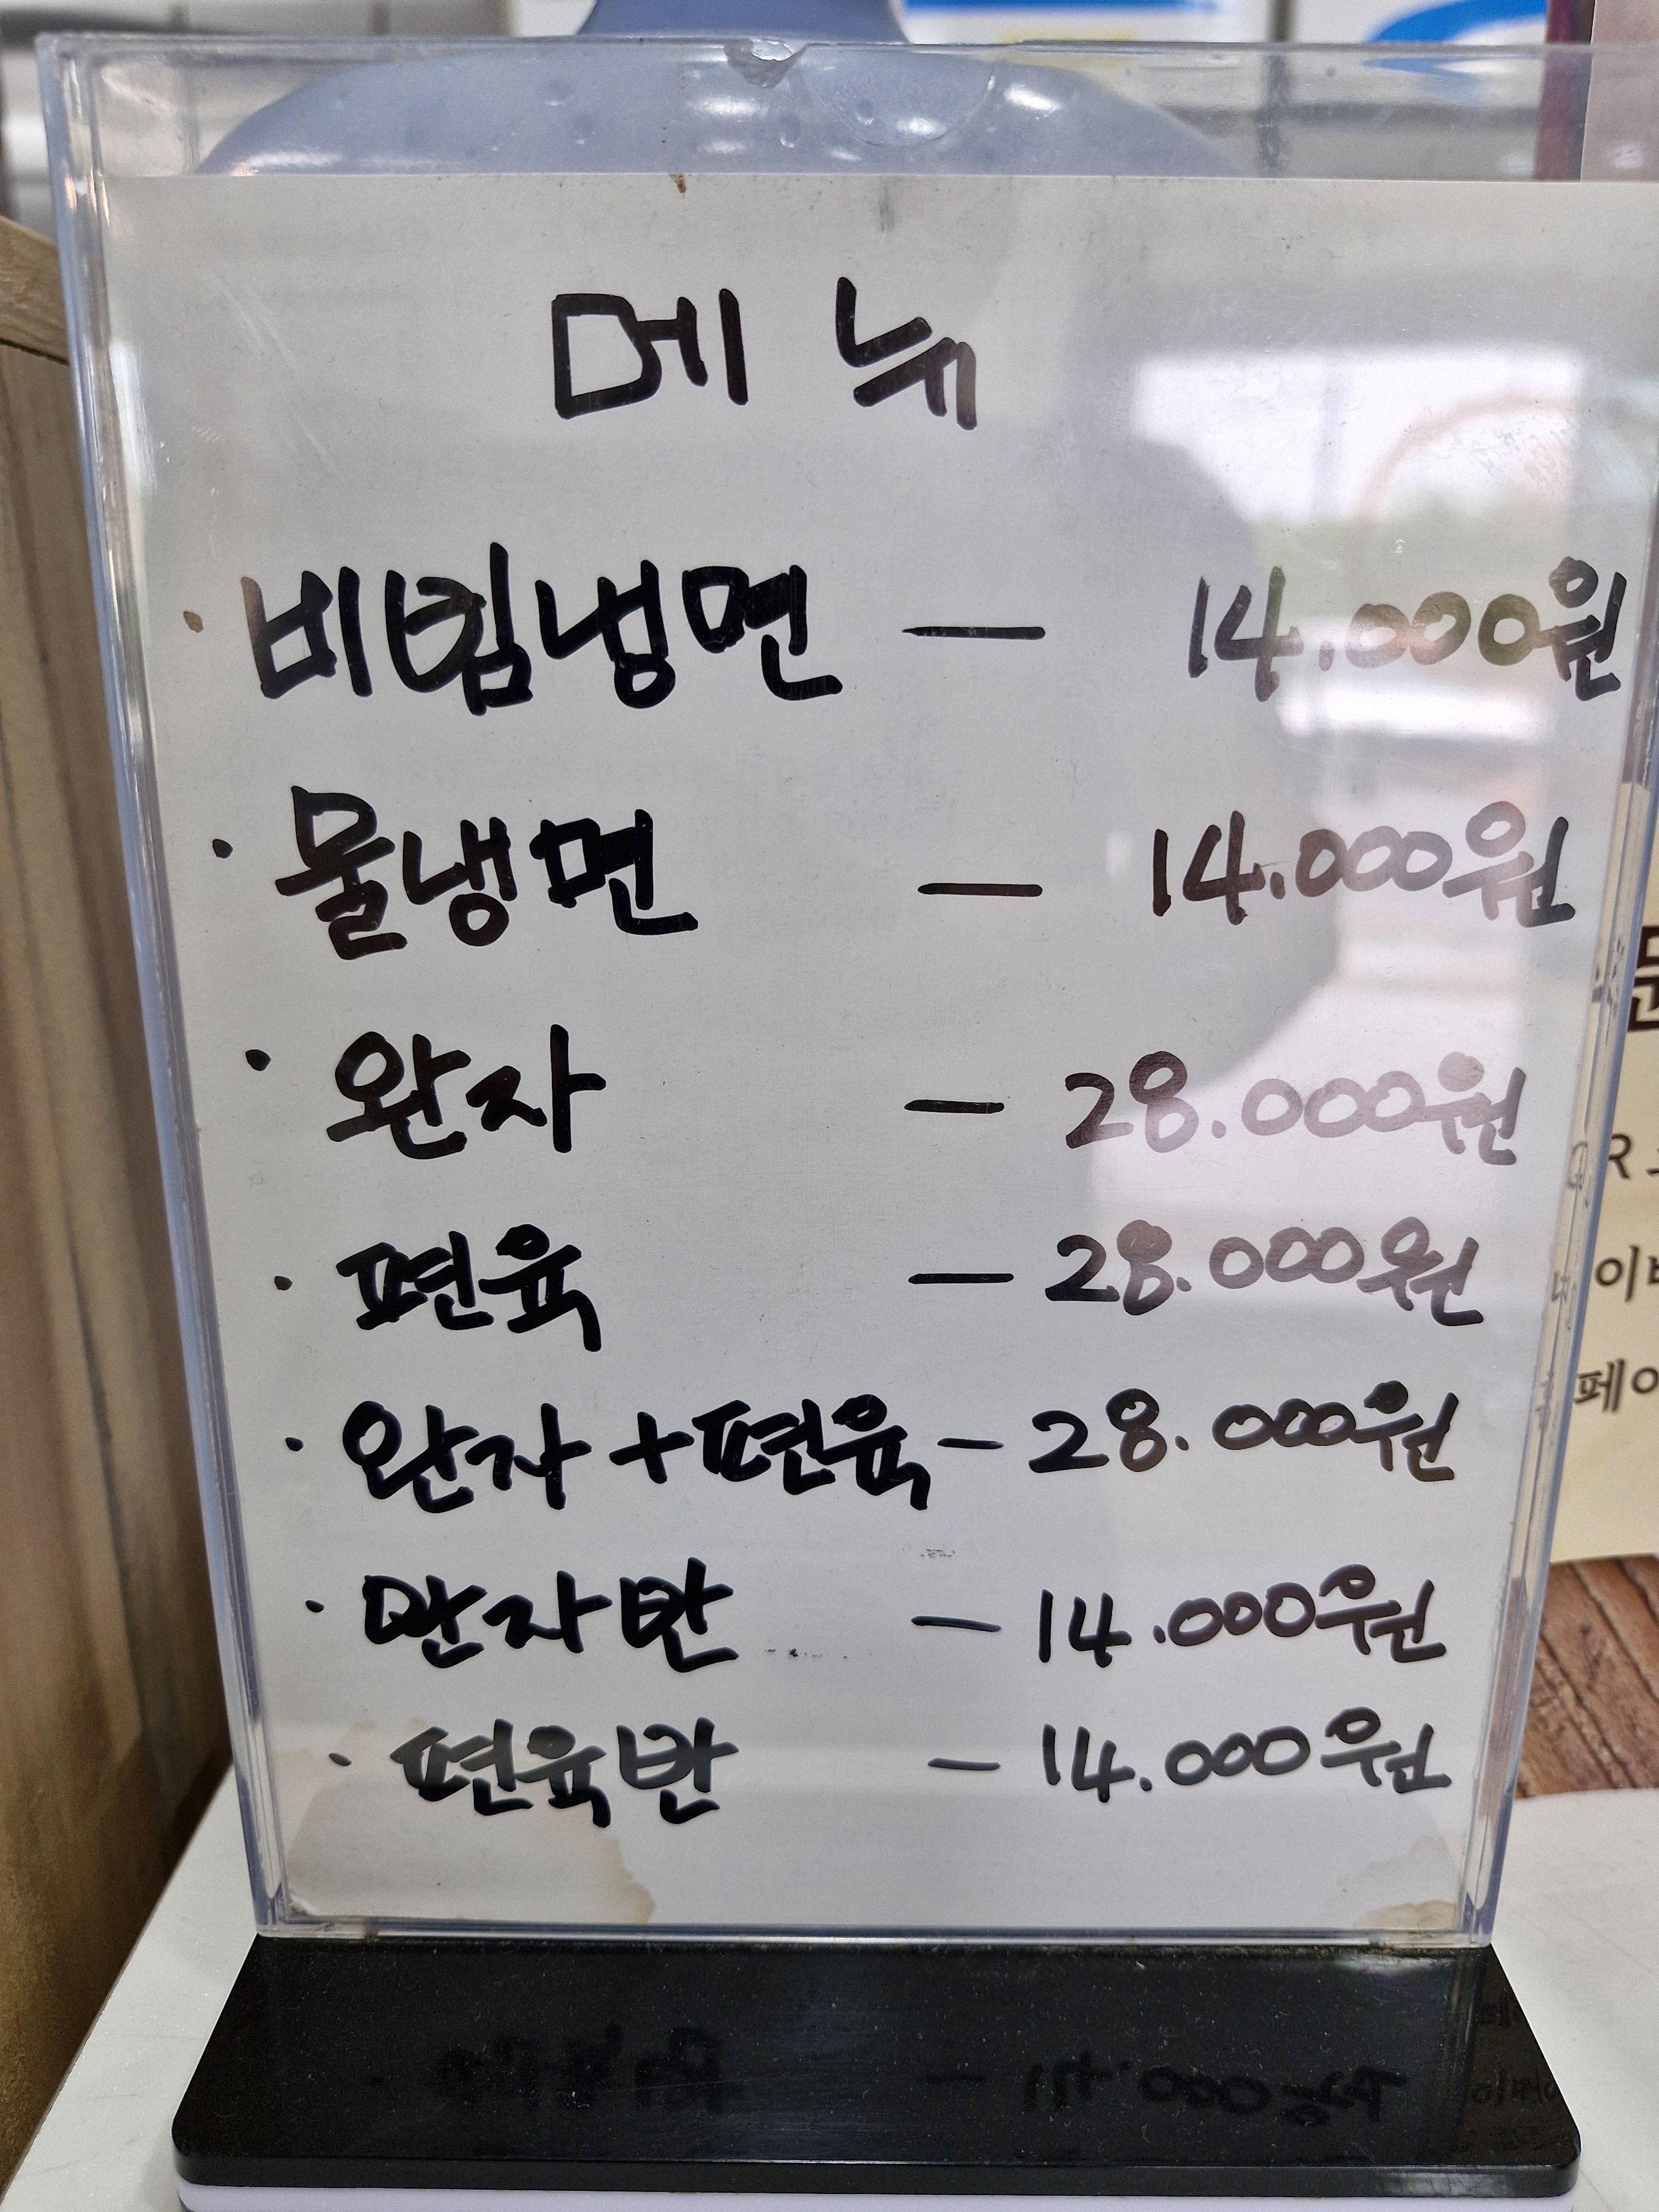 메뉴
· 비빔냉면 — 14.000원
· 물냉면 — 14.000원
· 완자 — 28.000원
· 편육 — 28.000원
· 완자+편육 — 28.000원
· 완자반 — 14.000원
· 편육반 — 14.000원